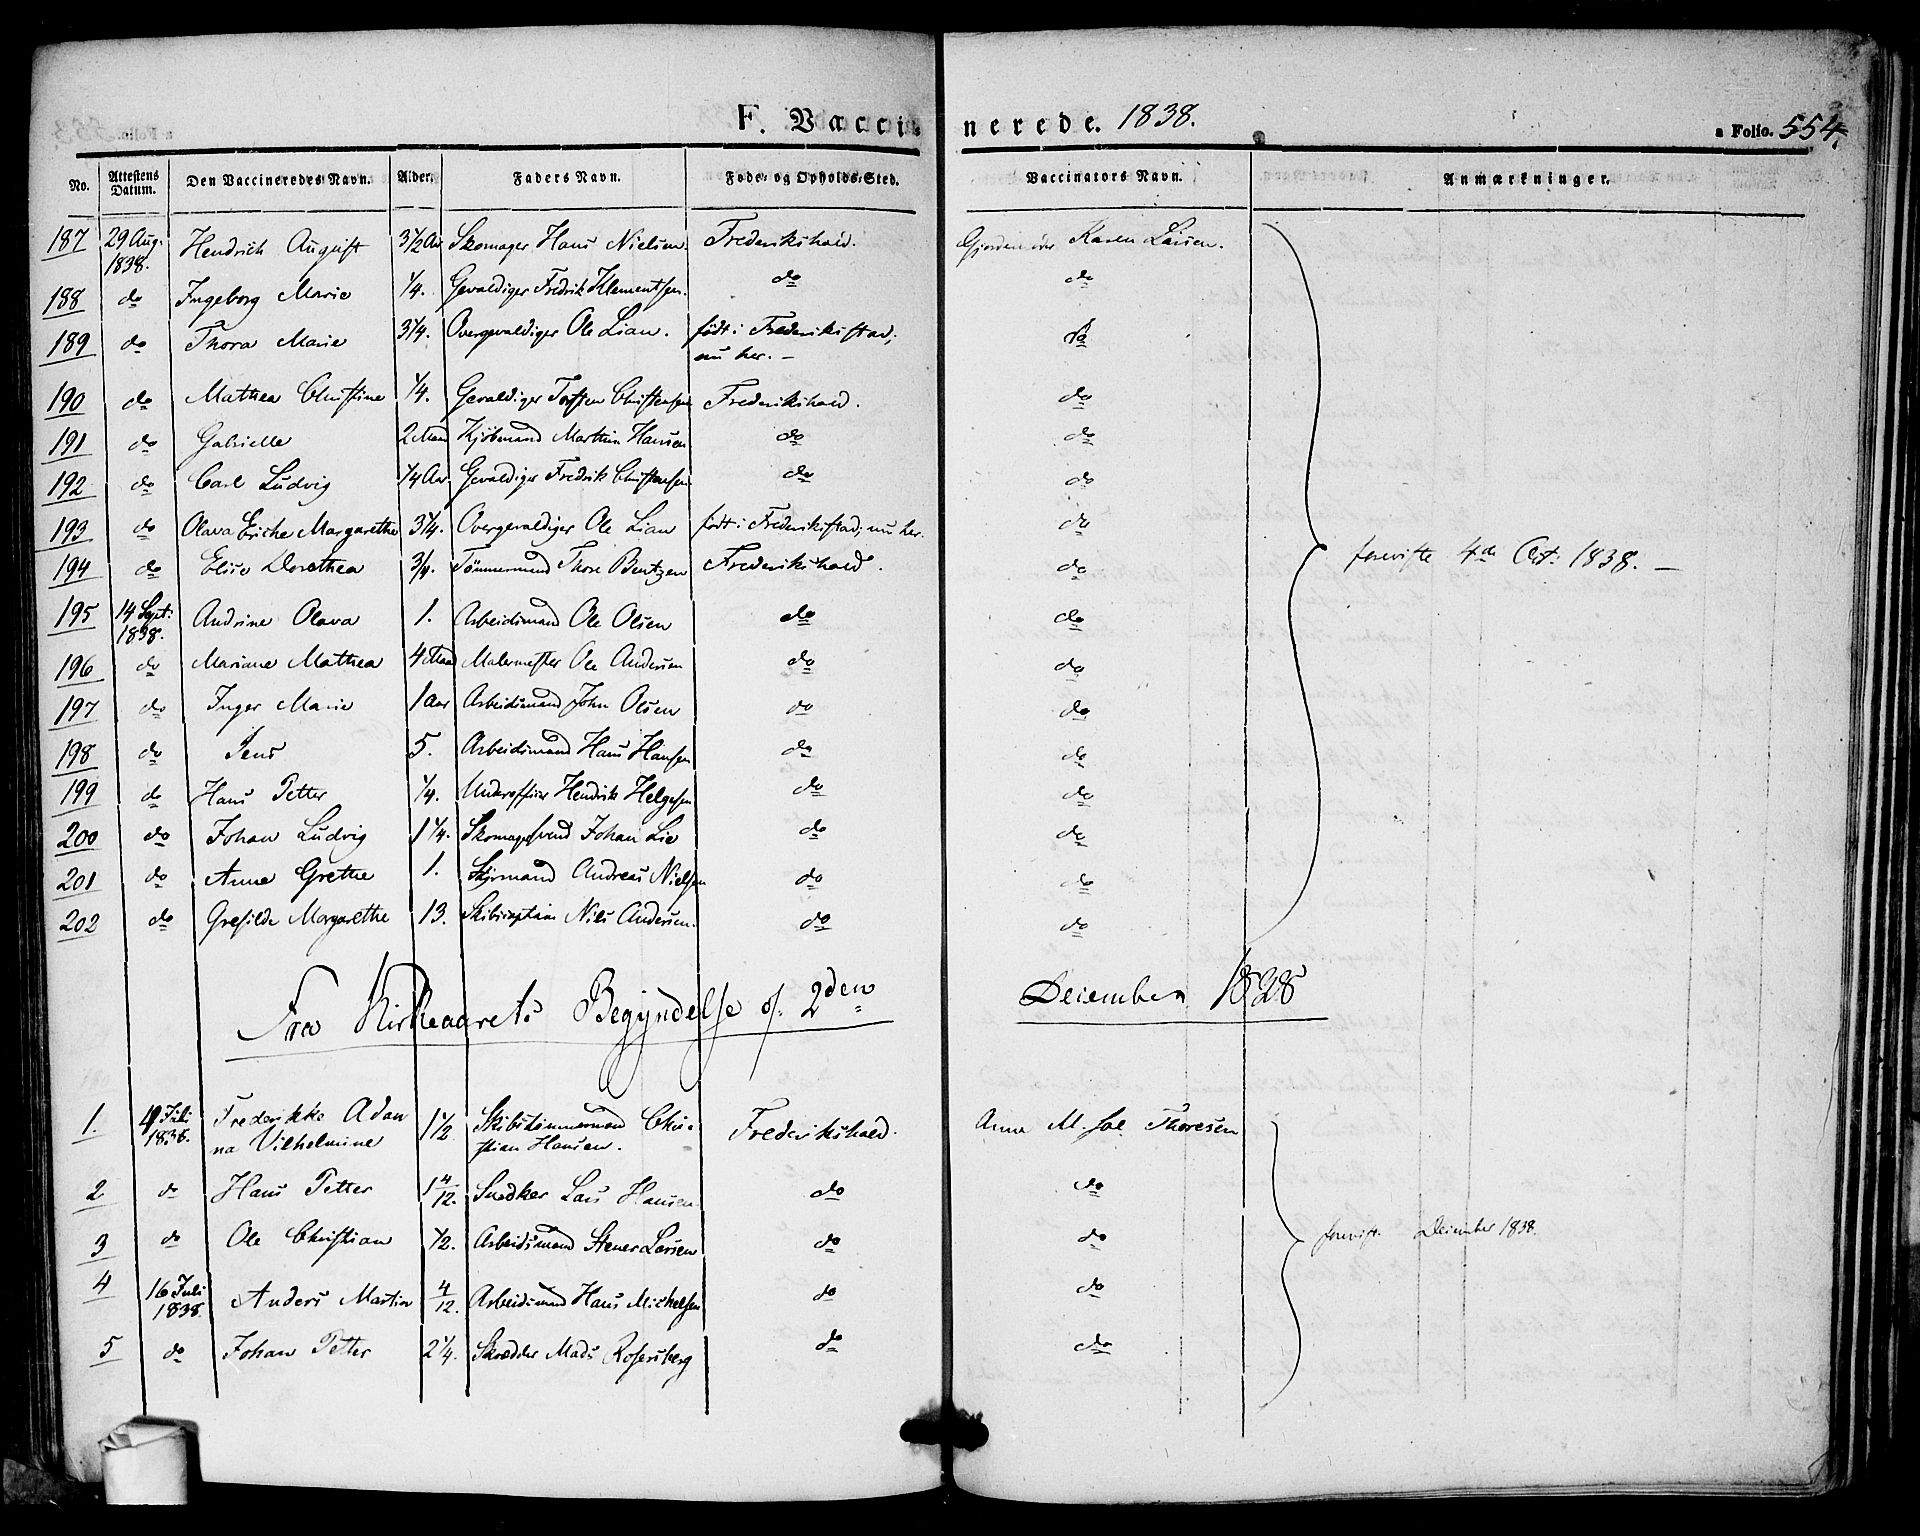 F. Vaccinerede. 1838.
a Folio. 554.
No. Attestens Datum. Den Vaccineredes Navn. Alder. Faders Navn. Føde- og Opholds-Sted. Vaccinators Navn. Anmærkninger.
187 29 Aug: 1838. Hendrich August 3 1/2 Aar Skomager Hans Nielsen. Frederikshald. Karen Larsen.
188 do Ingeborg Marie 1/4. Gevaldiger Fredrik Klementsen. do do
189 do Thora Marie 3 1/4. Overgevaldiger Ole Lian. født i Frederikstad; nu her. — do
190 do Mathea Christine 1/4. Gevaldiger Torsten Christensen Frederikshald. do
191 do Gabrielle 2 Maan Kjøbmand Marthin Hansen do do
192 do Carl Ludvig 1/4 Aar Gevaldiger Fredrik Christensen do do
193 do Olava Eriche Margarethe 3/4. Overgevaldiger Ole Lian født i Frederikstad; nu her. do
194 do Elise Dorothea 3/4. Tömmermand Thore Bentzen Frederikshald. do
195 14 Sept: 1838. Andrine Olava 1. Arbeidsmand Ole Olsen do do
196 do Mariane Mathea 4 Maan Malermester Ole Andersen do do
197 do Inger Marie 1 Aar Arbeidsmand John Olsen do do
198 do Jens 5. Arbeidsmand Hans Hansen do do
199 do Hans Petter 1/4. Underofficier Hendrik Helgesen do do
200 do Johan Ludvig 1 1/4. Skomagersvend Johan Lie do do
201 do Anne Grethe 1. Andreas Nielsen do do
202 do Gresilde Margarethe 13. Skibscaptain Niels Andersen. do do
foreviste 4de Oct: 1838. —
Fra Kirkeaarets Begyndelse d. 2den December 1828
1. Juli 1838. Frederikke Adan
na Vilhelmine 1 1/2 Skibstömmermand Chri-
stian Hansen. Frederikshald. Anne M. Thoresen
2 do Hans Petter 1 4/12. Snedker Lars Hansen do do
3 do Ole Christian 1/2. Arbeidsmand Stener Larsen do do
4 16 Juli 1838. Anders Martin 4/12. Arbeidsmand Hans Michelsen do do
5 do Johan Petter 2 1/4. Skrædder Mads Rosensberg do do
forevist. December 1838.